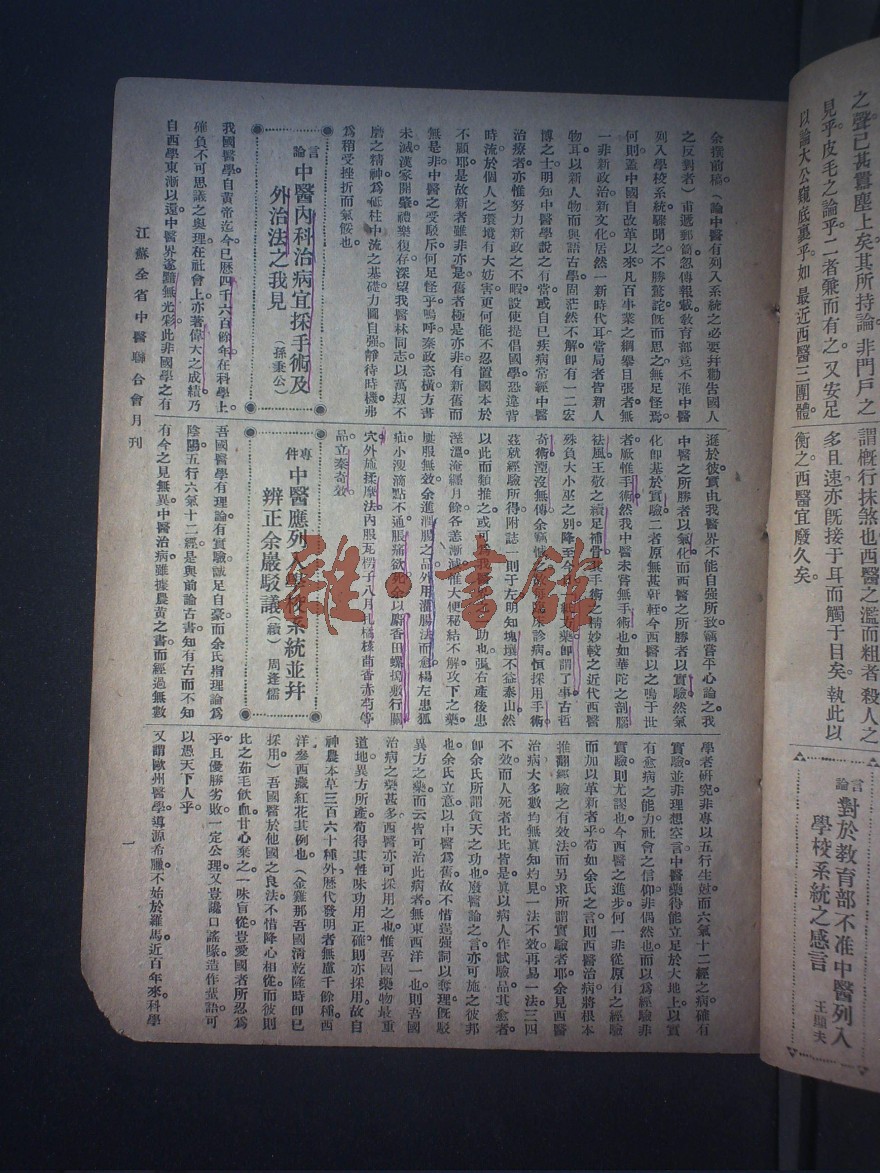 之聲已甚囂塵上矣。其所持論。非門戶之
見乎。皮毛之論乎。二者兼而有之。又安足
以論大公窺底裏乎。如最近西醫三團體
謂概行抹煞也西醫之濫而粗者殺人之
多且速亦旣接于耳而觸于目矣。執此以
衡之。西醫宜廢久矣。
言論
對於教育部不准中醫列入
學校系統之感言
王顯夫
余撰前稿。(論中醫有列入系統之必要幷勸告國人
之反對者)甫遞郵筒忽傳報載敎育部竟不准中醫
列入學校系統驟聞之不勝驚詫旣而思之無足怪焉
何則蓋中國自改革以來凡百事業之綱舉目張者無
一非新政治新文化居然一新時代耳當局者皆新人
物耳以新人物而與語古學固茫然不解卽有一二宏
博之士明知中醫學說之有當或自已疾病常經中醫
治療者亦惟努力新政之不暇設使提倡國學恐違背
時流於個人之環境有大妨害更何能不忍置國本於
不顧耶是故新者雖非亦是舊者極是亦非有新舊而
無是非中醫之受駁斥何足怪乎嗚呼秦政恣橫方書
未滅漢家開肇禮樂復存深望我醫林同志以萬刼不
磨之精神爲砥柱中流之基礎力圖自强靜待時機弗
爲稍受挫折而氣餒也。
言論
中醫內科治病宜採手術及
外治法之我見
(孫秉公)
我國醫學。自黃帝迄今已歷四千六百餘年在科學上
確負不可思議之奧理在社會上亦著偉大之成績乃
自西學東漸以還中醫界遂黯無光彩此非國學之有
遜於彼實由我醫界不能自强所致竊嘗平心論之我
中醫之所勝者以氣化而西醫之所勝者以實驗然氣
化卽基於實驗二者原無甚軒輊今西醫以之鳴于世
者厥惟手術然我中醫未嘗無手術也如華陀之剖腦
祛風王敬之續足補骨其手術之精妙較之近代西醫
殊負大小巫之別降至今日
奇術湮沒無傳余竊憾之故每臨床診病恒採用手術
茲就經驗所得附誌一則于左明知塊壤不益泰山然
以此而類推之或可爲我醫界之一助也張右產後患
溼溫淹纏月餘各恙漸減惟大便秘結不解攻下之藥
屢服無效余進潤腸之品外用灌腸法而愈楊左患狐
疝小溲滴點不通脹痛欲死余以麝香田螺搗敷行關
穴外施揉摩法內服瓦楞子八月扎橘核茴香赤芍等
品立奏奇效。
專件
中醫應列入學校系統並幷
辨正余巖駁議(續)
周蓬儒
吾國醫學有理論有實驗誠足自豪而余氏指理論爲
陰陽五行六氣十二經是與前論古書知有古而不知
有今之見無異中醫治病雖據農黃之書而經過無數
學者硏究非專以五行生尅而六氣十二經之病確有
實驗並非理想空言中醫藥得能立足於大地上以實
有愈病之能力社會之信仰非偶然也而以爲經驗非
實驗則尤謬也今西醫之進步何一非從原有之經驗
而加以革新者乎苟如余氏之言則西醫治病將根本
推翻經驗之有效法而另求所謂實驗者耶余見西醫
治病大多數均無眞知灼見一法不效再易一法三四
不效而人死者比比皆是眞以病人作試驗品其愈者
卽余氏所謂貪天之功也廢醫論之言亦可施之彼邦
也余氏立意以中醫爲舊故不惜逞强詞以奪理旣駁
異方之藥而云皆可治此病者無東西洋一也則吾國
治病之藥甚多西醫亦可採用之也惟吾國藥物最重
道地異方所產苟得其性味功用正確則亦採用故自
神農本草三百六十種外歷代發明者無慮千餘種西
洋參西藏紅花其例也(金雞那吾國淸乾隆時卽已
採用)吾國醫於他國之良法不惜降心相從而彼則
比之茹毛飮血甘心棄之一味盲從豈愛國者所忍爲
乎且優勝劣敗一定公理又豈讒口謠喙造作蜚語可
以愚天下人乎。
又謂歐州醫學導源希臘不始於羅馬近百年來科學
江蘇全省中醫聯合會月刊
一
雅·書館